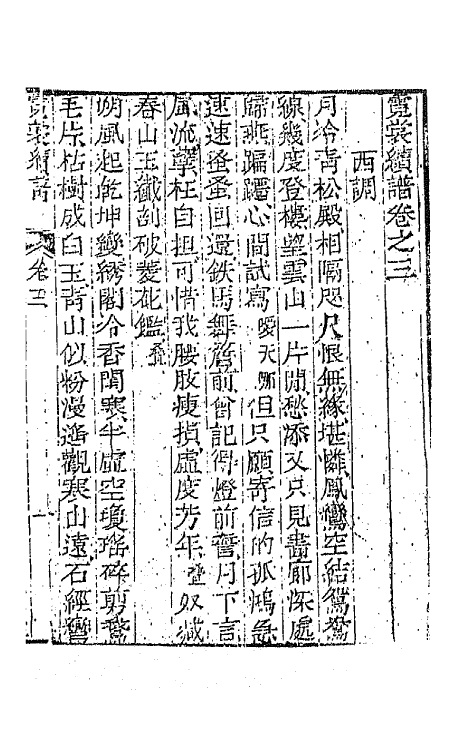 霓裳續譜卷之三
西調
月冷青松殿相隔咫尺恨無緣堪憐鳳鸞空結鴛鴦
線幾度登樓望雲山一片閒愁添又只見畫廊深處
歸燕蹁躚心間試寫嗳天哪但只願寄信的孤鴻急
速速俺蚤回還鉄馬舞簷前曾記得燈前誓月下言
風流孽枉自担可惜我腰肢瘦損虛度芳年疊奴減
春山玉纖刮破菱花鑑疊
朔風起乾坤變綉閣冷香閨寒半虛空瓊瑤碎剪鵞
毛片枯樹成白玉青山似粉漫遙觀寒山遠石經彎
霓裳續譜
卷三
一